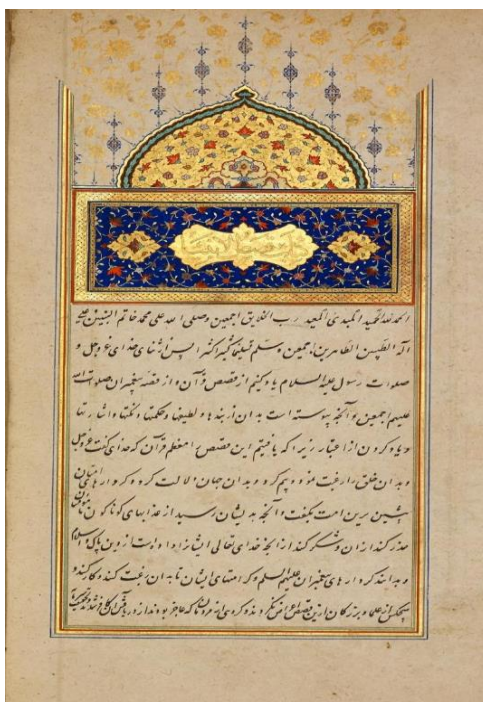 کتاب قصص الانبیا
الحمد لله الحمید المبدئ المعید رب الخلایق اجمعین وصلی الله علی محمد خاتم النبیین علی
آله الطیبین الطاهرین اجمعین وسلم تسلیما کثیرا کثیرا پس از ثنای خدای عزوجل و
صلوات رسول علیه السلام یاد کنیم از قصص قرآن و از قصه پیغمبران صلوات الله
علیهم اجمعین و آنچه پیوسته است بدان از پندها و لطیفها و حکمتها و نکتها و اشارتها
و یاد کردن از اعتبار زیراکه یافتیم این قصص معظم قرآن که خدای گفت عزوجل
و بدان خلق را رغبت نمود و بیم کرد و بدان جهان دلالت کرد و کردارهای
پیشین برین امت بگفت و آنچه بدیشان رسید از عذابهای گوناگون تا مؤمنان
حذر کنند ازان و شکر کنند از آنچه خدای تعالی ایشانرا داد است از دین پاک و اسلام
و بدانند کردارهای پیغمبران علیهم السلم و کرامتهای ایشان تا بدان رغبت کنند و کار کنند و
هیچکس از علما و بزرگان ازین قصص اعراض نکردند و کروهی از مردمان که عاجز بودند از